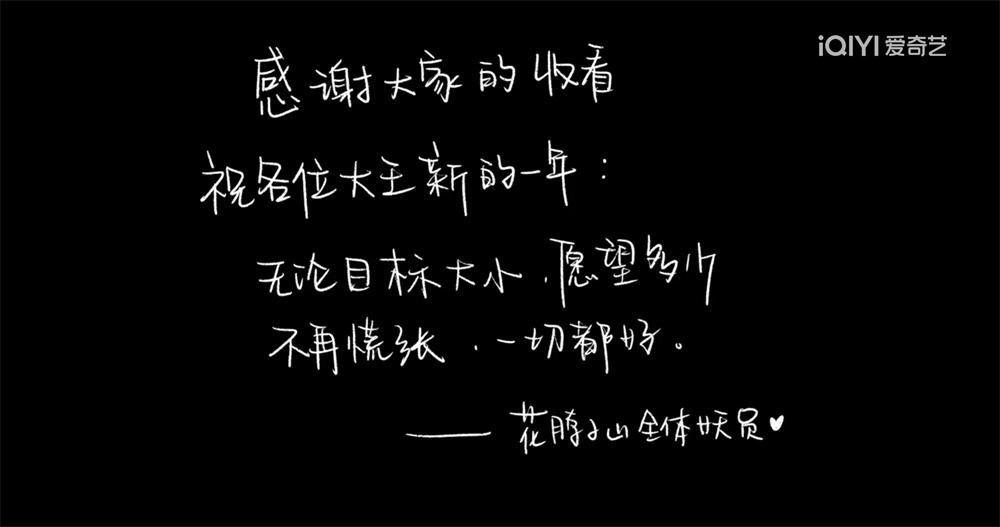 iQIYI 爱奇艺
感谢大家的收看
祝各位大王新的一年：
无论目标大小，愿望多少
不再慌张，一切都好。
——花脖子山全体妖员♥